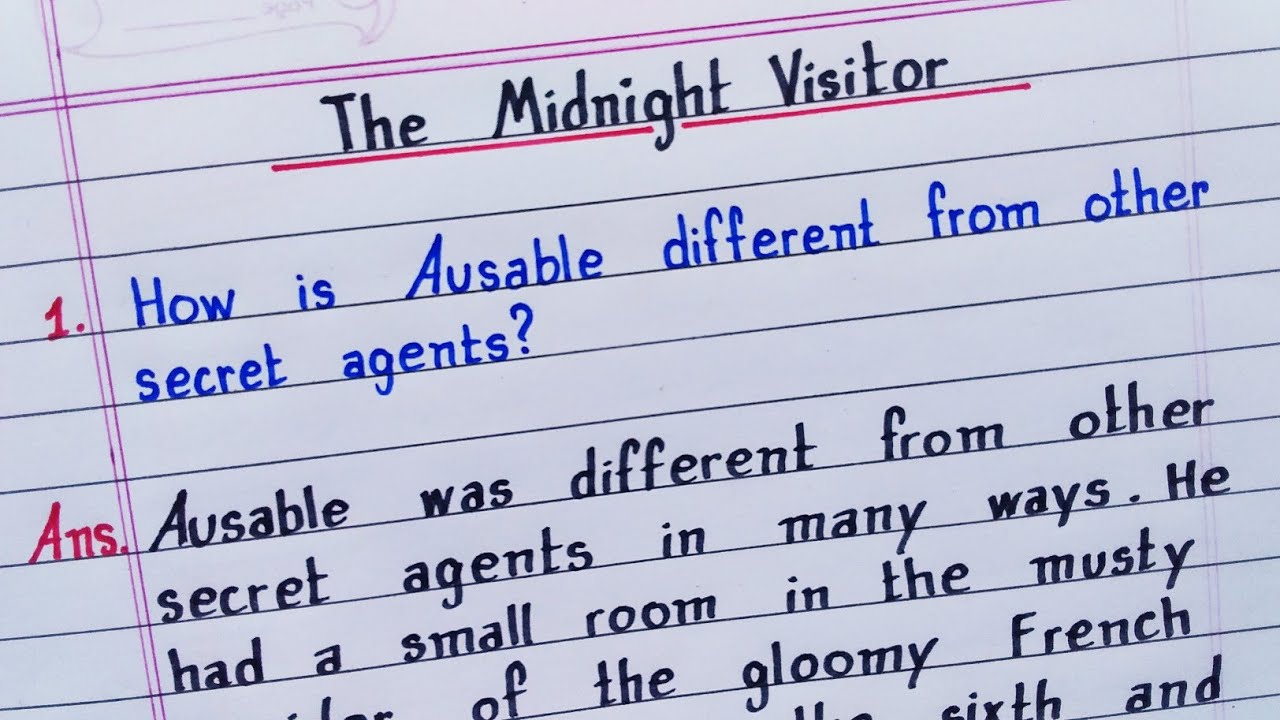 The Midnight Visitor
1. How is Ausable different from other
secret agents?
Ans. Ausable was different from other
secret agents in many ways. He
had a small room in the musty
of the gloomy French
the sixth and